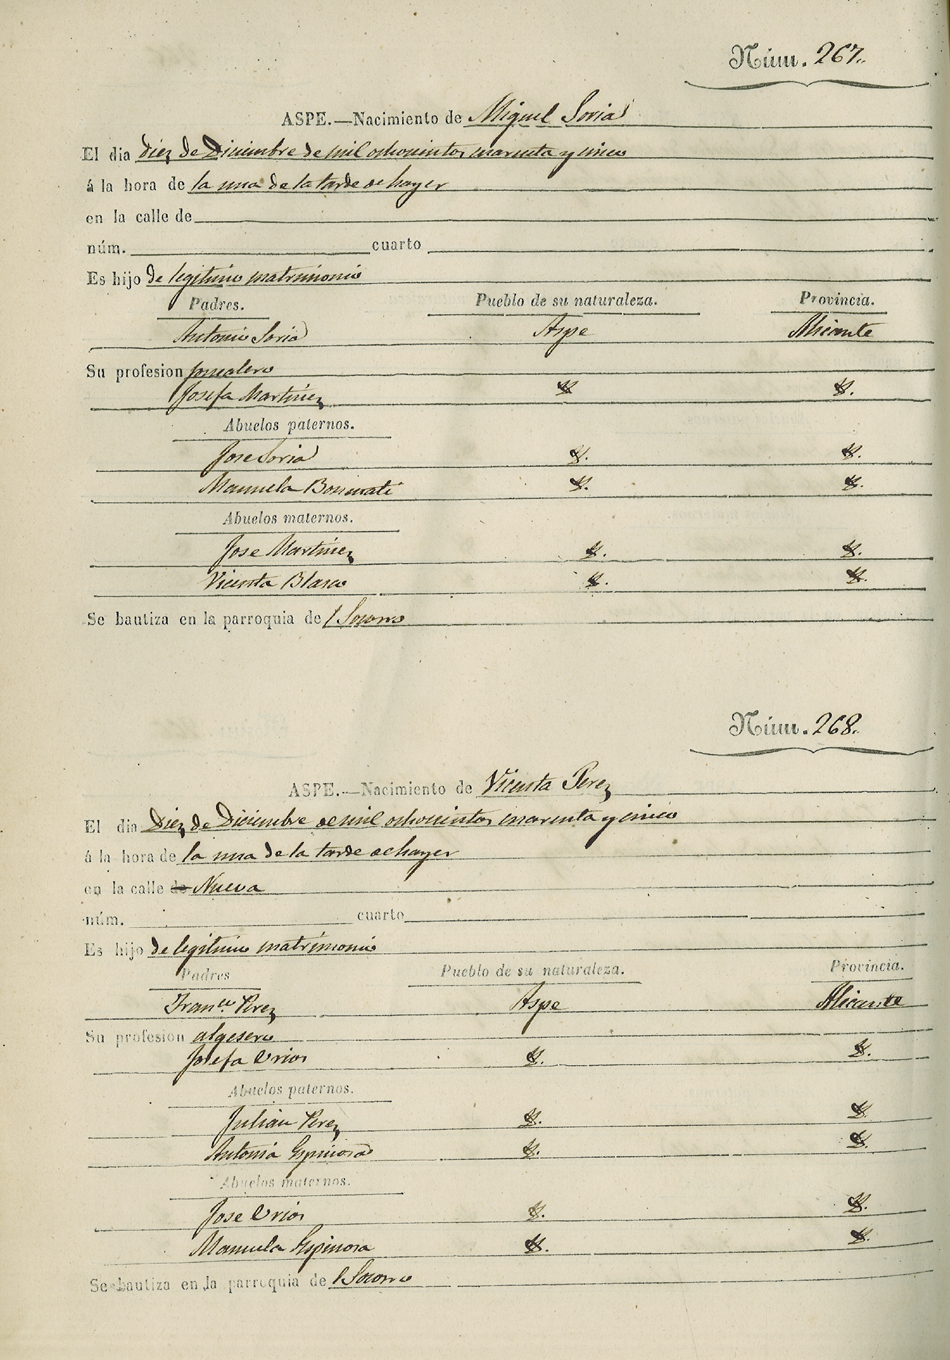 Núm. 267.
ASPE.—Nacimiento de Miguel Soria
El dia diez de Diciembre de mil ochocientos cuarenta y cinco
á la hora de la una de la tarde de hayer
en la calle de
núm. cuarto
Es hijo de legitimo matrimonio
Padres. Pueblo de su naturaleza. Provincia.
Antonio Soria Aspe Alicante
Su profesion
Josefa Martinez
Abuelos paternos.
Jose Soria
Manuela Bonmati
Abuelos maternos.
Jose Martinez
Vicenta Blasco
Se bautiza en la parroquia de l Socorro
Núm. 268.
ASPE.—Nacimiento de Vicenta Perez
El dia Diez de Diciembre de mil ochocientos cuarenta y cinco
á la hora de la una de la tarde de hayer
en la calle de Nueva
núm. cuarto
Es hijo de legitimo matrimonio
Padres Pueblo de su naturaleza. Provincia.
Franco. Perez Aspe Alicante
Su profesion algesero
Josefa Urios
Abuelos paternos.
Julian Perez
Antonia Espinosa
Abuelos maternos.
Jose Urios
Manuela Espinosa
Se bautiza en la parroquia de l Socorro